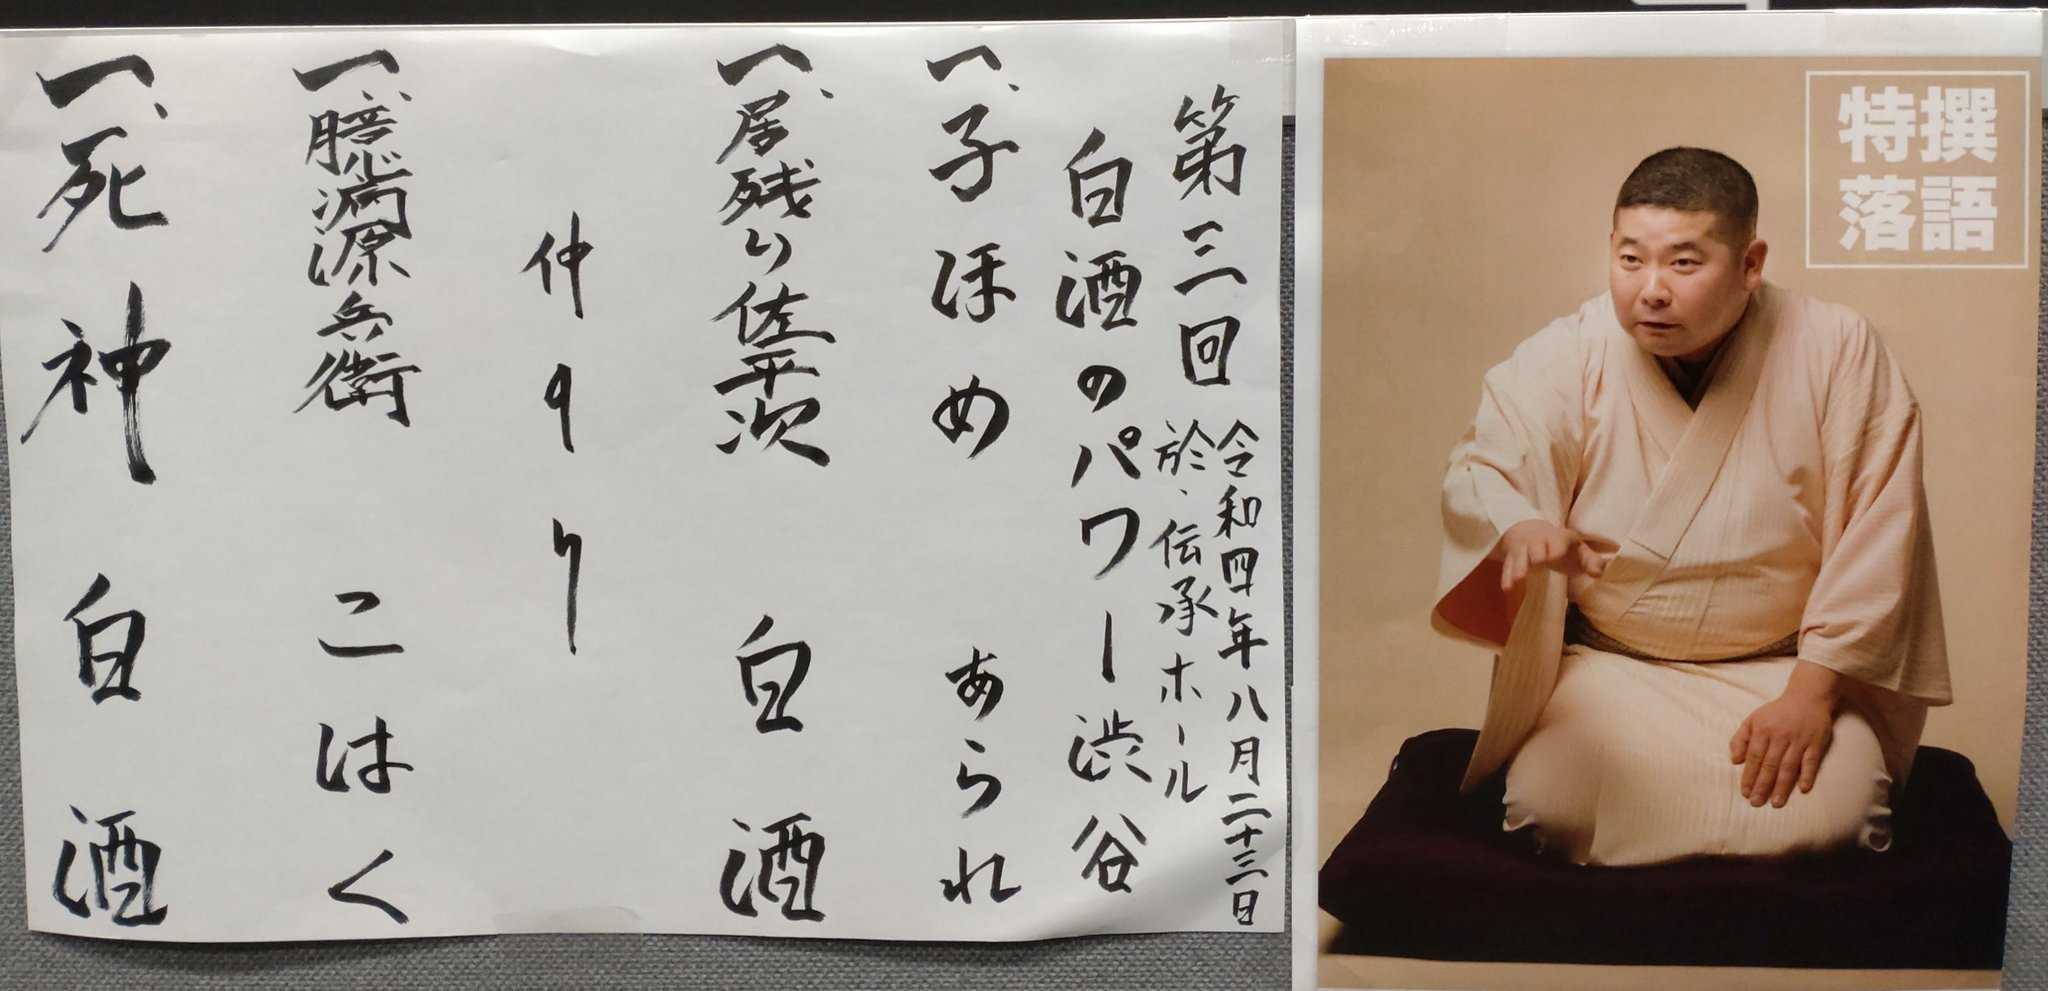 特撰
落語
第三回
令和四年八月二十三日
於、伝承ホール
白酒のパワー渋谷
一、子ほめ　あられ
一、居残り佐平次　白酒
仲入り
一、臆病源兵衛　こはく
一、死神　白酒